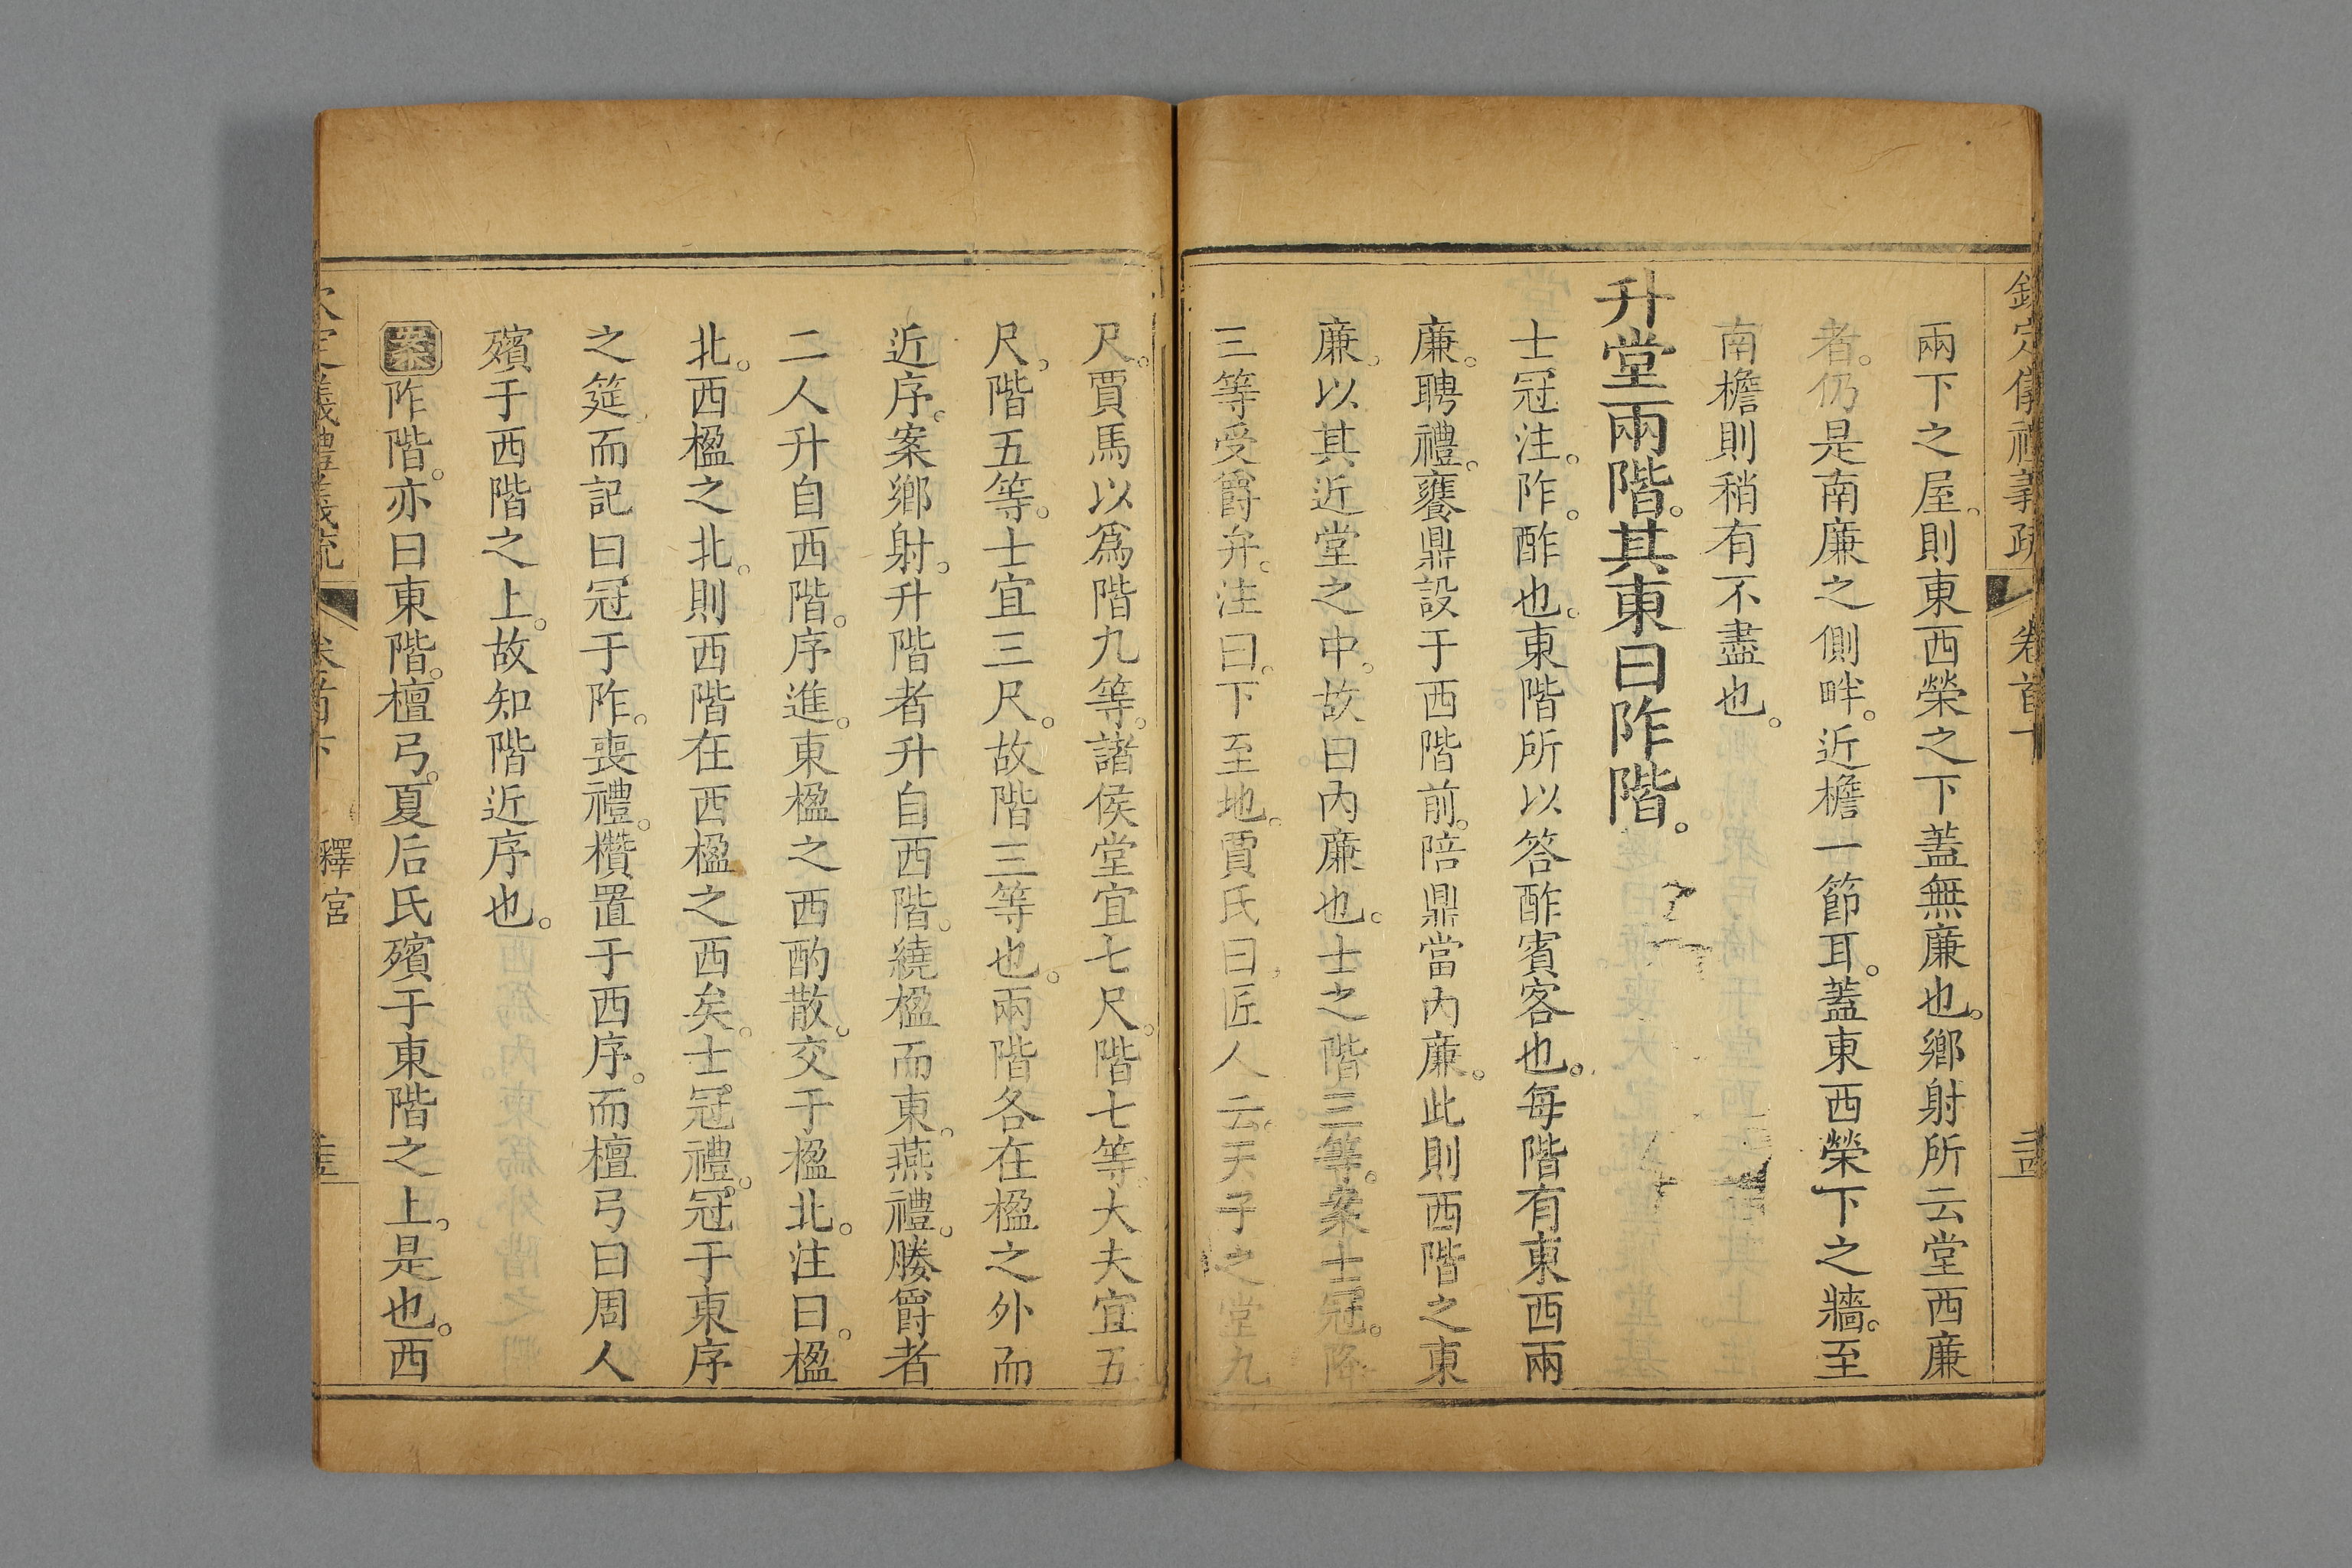 兩下之屋。則東西榮之下蓋無廉也。鄉射所云堂西廉
者。仍是南廉之側畔。近檐一節耳。蓋東西榮下之牆。至
南檐則稍有不盡也。
升堂兩階。其東曰阼階。
士冠注。阼。酢也。東階所以答酢賓客也。每階有東西兩
廉。聘禮。饔鼎設于西階前。陪鼎當內廉。此則西階之東
廉。以其近堂之中。故曰內廉也。士之階三等。案士冠。降
三等受爵弁。注曰。下至地。賈氏曰。匠人云。天子之堂九
尺。賈馬以爲階九等。諸侯堂宜七尺。階七等。大夫宜五
尺。階五等。士宜三尺。故階三等也。兩階各在楹之外而
近序。案鄉射。升階者升自西階。繞楹而東。燕禮。媵爵者
二人升自西階。序進。東楹之西酌散。交于楹北。注曰。楹
北。西楹之北。則西階在西楹之西矣。士冠禮。冠于東序
之筵。而記曰冠于阼。喪禮。欑置于西序。而檀弓曰周人
殯于西階之上。故知階近序也。
案阼階。亦曰東階。檀弓。夏后氏殯于東階之上。是也。西
釋宮